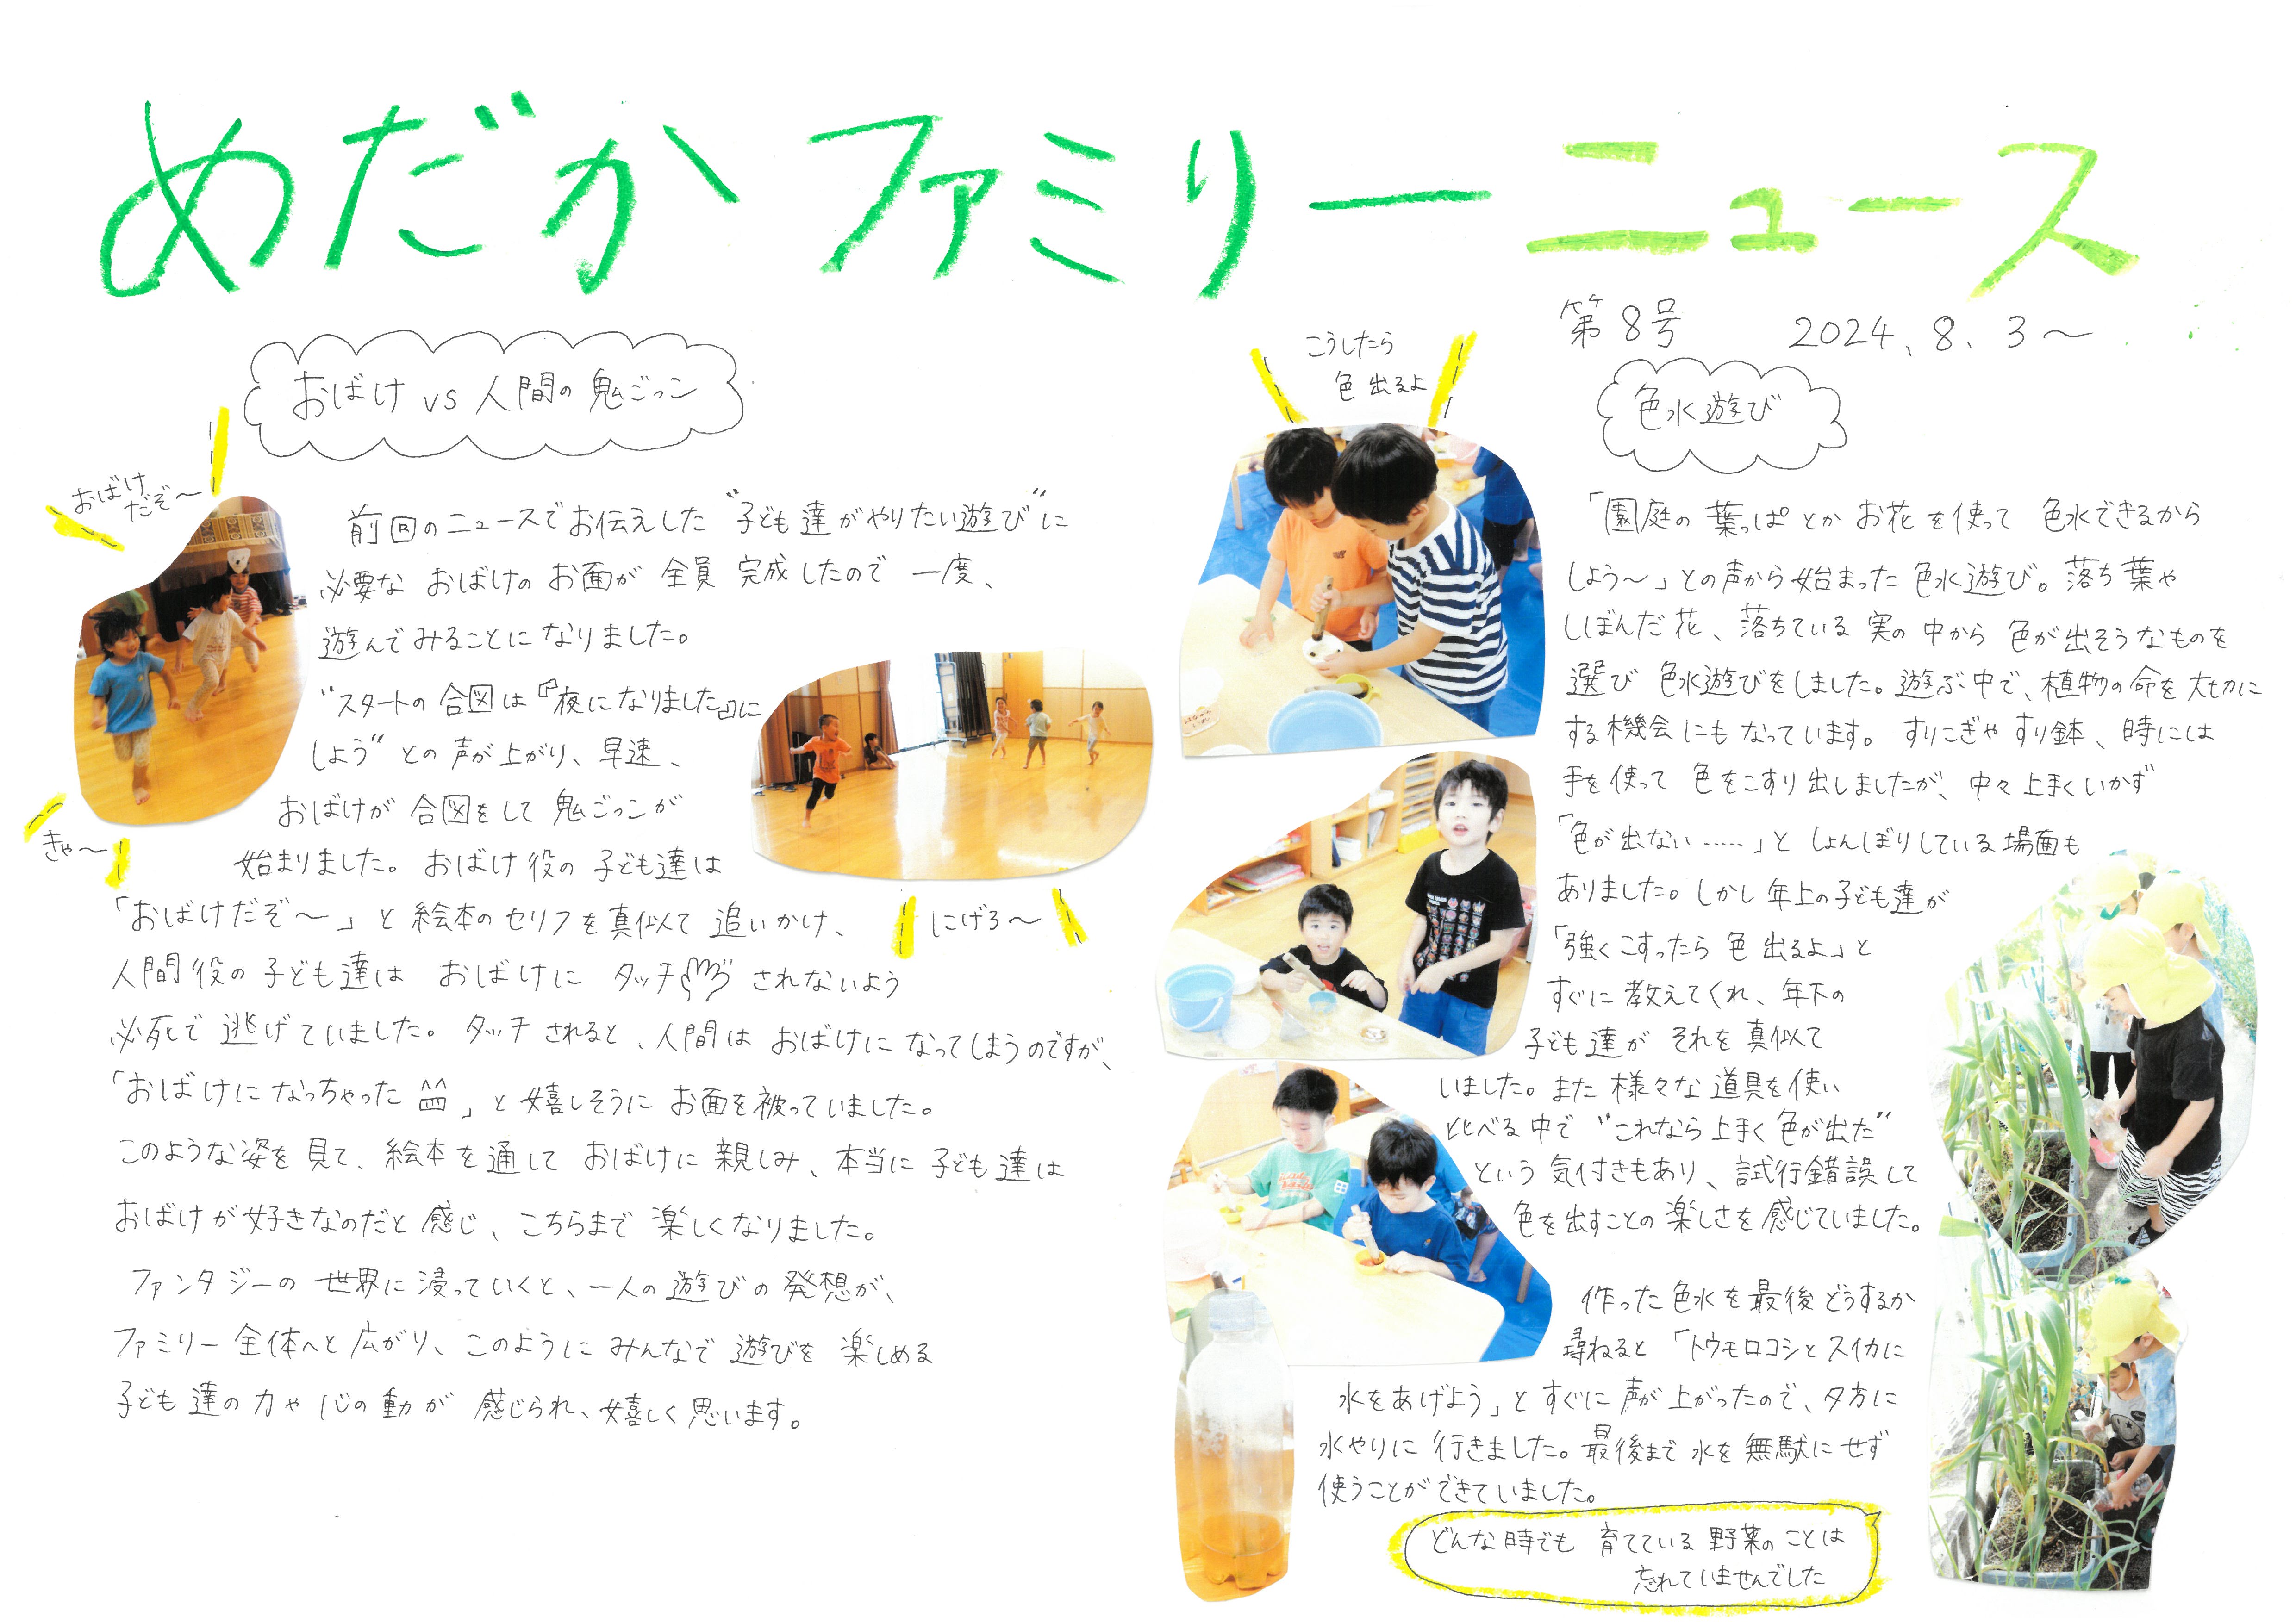 めだか ファミリー ニュース
第8号 2024.8.3～
おばけ vs 人間の鬼ごっこ
おばけ
だぞ～
きゃ～
前回のニュースでお伝えした"子ども達がやりたい遊び"に
必要な おばけの お面が 全員 完成したので 一度、
遊んでみることになりました。
"スタートの合図は『夜になりました』に
しよう"との声が上がり、早速、
おばけが 合図をして 鬼ごっこが
始まりました。おばけ役の子ども達は
「おばけだぞ～」と絵本のセリフを真似て追いかけ、
人間役の子ども達は おばけに タッチ されないよう
必死で逃げていました。タッチされると、人間は おばけに なってしまうのですが、
「おばけになっちゃった 」と嬉しそうに お面を被っていました。
このような姿を見て、絵本を通して おばけに親しみ、本当に子ども達は
おばけが好きなのだと感じ、こちらまで楽しくなりました。
ファンタジーの世界に浸っていくと、一人の遊びの発想が、
ファミリー全体へと広がり、このように みんなで遊びを楽しめる
子ども達の力や心の動が 感じられ、嬉しく思います。
にげろ～
こうしたら
色出るよ
色水遊び
「園庭の葉っぱとか お花を使って 色水できるから
しよう～」との声から始まった色水遊び。落ち葉や
しぼんだ花、落ちている実の中から色が出そうなものを
選び 色水遊びをしました。遊ぶ中で、植物の命を大切に
する機会にもなっています。すりこぎやすり鉢、時には
手を使って 色をこすり出しましたが、中々上手くいかず
「色が出ない……」としょんぼりしている場面も
ありました。しかし年上の子ども達が
「強くこすったら色出るよ」と
すぐに教えてくれ、年下の
子ども達がそれを真似て
いました。また様々な道具を使い
比べる中で"これなら上手く色が出た"
という気付きもあり、試行錯誤して
色を出すことの楽しさを感じていました。
作った色水を最後どうするか
尋ねると「トウモロコシとスイカに
水をあげよう」とすぐに声が上がったので、夕方に
水やりに行きました。最後まで水を無駄にせず
使うことができていました。
どんな時でも 育てている野菜のことは
忘れていませんでした